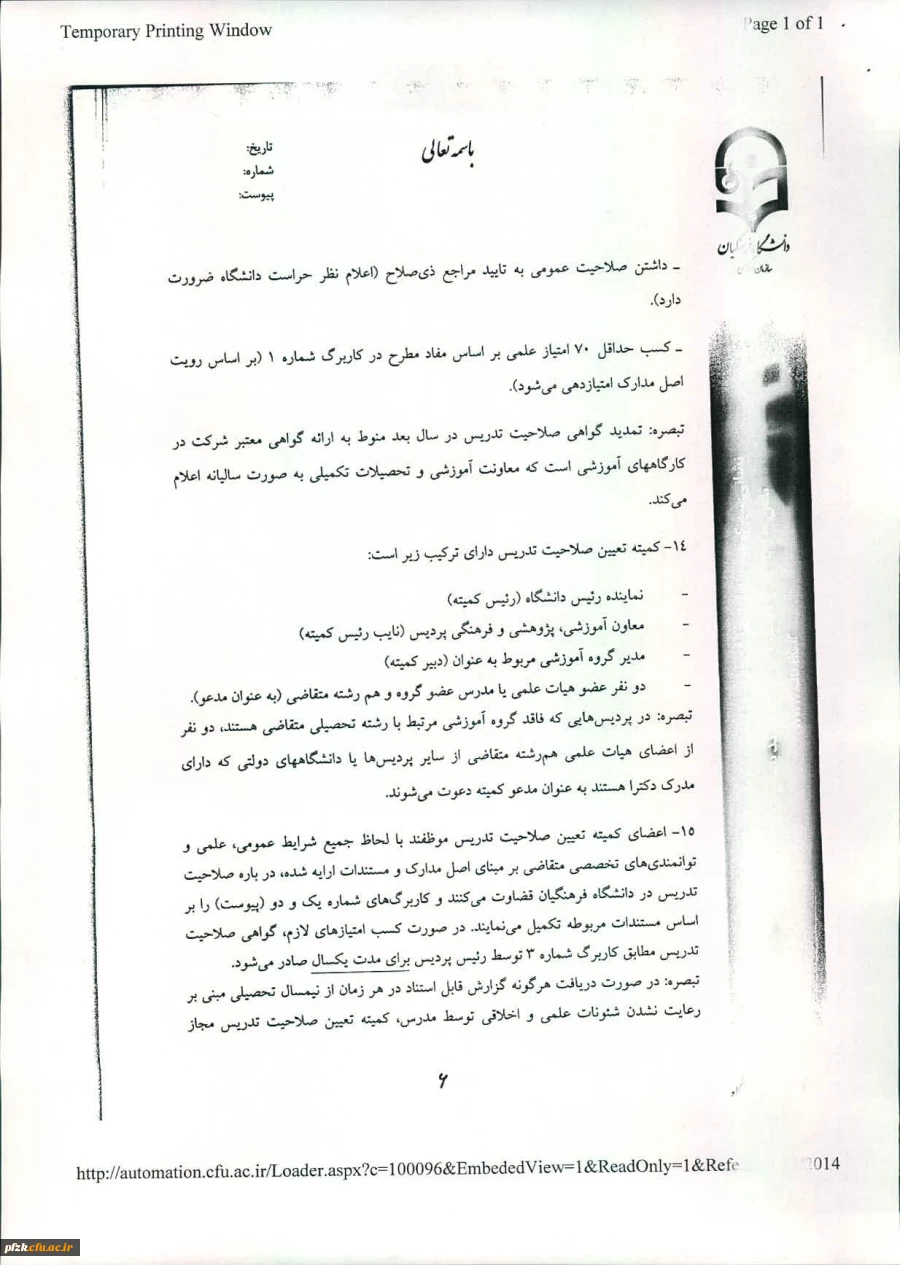 Temporary Printing Window
Page 1 of 1
باسمه تعالی
تاریخ:
شماره:
پیوست:
دانشگاه فرهنگیان
ـ داشتن صلاحیت عمومی به تایید مراجع ذی‌صلاح (اعلام نظر حراست دانشگاه ضرورت
دارد).
ـ کسب حداقل ۷۰ امتیاز علمی بر اساس مفاد مطرح در کاربرگ شماره ۱ (بر اساس رویت
اصل مدارک امتیازدهی می‌شود).
تبصره: تمدید گواهی صلاحیت تدریس در سال بعد منوط به ارائه گواهی معتبر شرکت در
کارگاههای آموزشی است که معاونت آموزشی و تحصیلات تکمیلی به صورت سالیانه اعلام
می‌کند.
۱٤- کمیته تعیین صلاحیت تدریس دارای ترکیب زیر است:
- نماینده رئیس دانشگاه (رئیس کمیته)
- معاون آموزشی، پژوهشی و فرهنگی پردیس (نایب رئیس کمیته)
- مدیر گروه آموزشی مربوط به عنوان (دبیر کمیته)
- دو نفر عضو هیات علمی یا مدرس عضو گروه و هم رشته متقاضی (به عنوان مدعو).
تبصره: در پردیس‌هایی که فاقد گروه آموزشی مرتبط با رشته تحصیلی متقاضی هستند، دو نفر
از اعضای هیات علمی هم‌رشته متقاضی از سایر پردیس‌ها یا دانشگاههای دولتی که دارای
مدرک دکترا هستند به عنوان مدعو کمیته دعوت می‌شوند.
۱۵- اعضای کمیته تعیین صلاحیت تدریس موظفند با لحاظ جمیع شرایط عمومی، علمی و
توانمندی‌های تخصصی متقاضی بر مبنای اصل مدارک و مستندات ارایه شده، در باره صلاحیت
تدریس در دانشگاه فرهنگیان قضاوت می‌کنند و کاربرگ‌های شماره یک و دو (پیوست) را بر
اساس مستندات مربوطه تکمیل می‌نمایند. در صورت کسب امتیازهای لازم، گواهی صلاحیت
تدریس مطابق کاربرگ شماره ۳ توسط رئیس پردیس برای مدت یکسال صادر می‌شود.
تبصره: در صورت دریافت هرگونه گزارش قابل استناد در هر زمان از نیمسال تحصیلی مبنی بر
رعایت نشدن شئونات علمی و اخلاقی توسط مدرس، کمیته تعیین صلاحیت تدریس مجاز
۶
http://automation.cfu.ac.ir/Loader.aspx?c=100096&EmbededView=1&ReadOnly=1&Refe
2014
pfzk.cfu.ac.ir